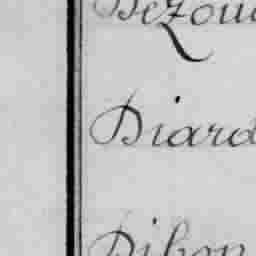 Dezou
Diard
Dibon